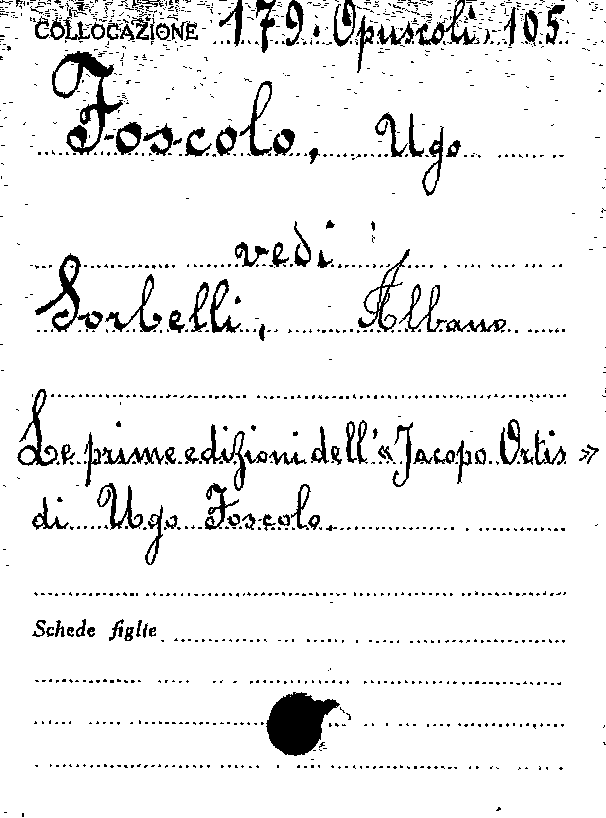 COLLOCAZIONE 179. Opuscoli. 105
Foscolo, Ugo
vedi
Sorbelli, Albano
Le prime edizioni dell'«Jacopo Ortis»
di Ugo Foscolo.
Schede figlie